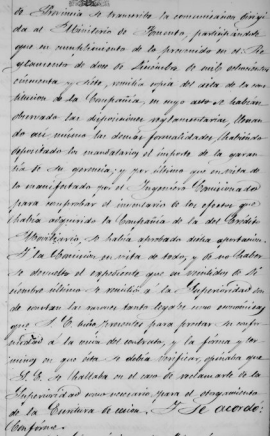 de Provincia se transcribe la comunicacion dirigi
da al Ministerio de Fomento, participandole
que en cumplimiento de lo prevenido en el Re
glamento de doce de Diciembre de mil ochocientos
cincuenta y siete, remitia copia del acta de la cons
titucion de la Compañia, en cuyo acto se habian
observado las disposiciones reglamentarias, llenando
asi mismo las demas formalidades, habiendo
depositado los mandatarios el importe de la garan
tia de su gerencia; y por último que en vista de
lo manifestado por el Ingeniero Comisionado
para comprobar el inventario de los efectos que
habia adquirido la Compañia de la del Crédito
Moviliario, se habia aprobado dicha aportacion.
Y la Comision en vista de todo, y de no haber
se devuelto el expediente que en veintidos de Di
ciembre último se remitió a la Superioridad don
de constan las razones tanto legales como económicas,
que S. E. tuvo presentes para prestar su confor
midad a la union del contrato, y la forma y ter
minos en que esta se debia verificar, opinaba que
S. E. se hallaba en el caso de reclamarle de la
Superioridad como necesario para el otorgamiento
de la Escritura de union. Y Se acordó:
Conforme.